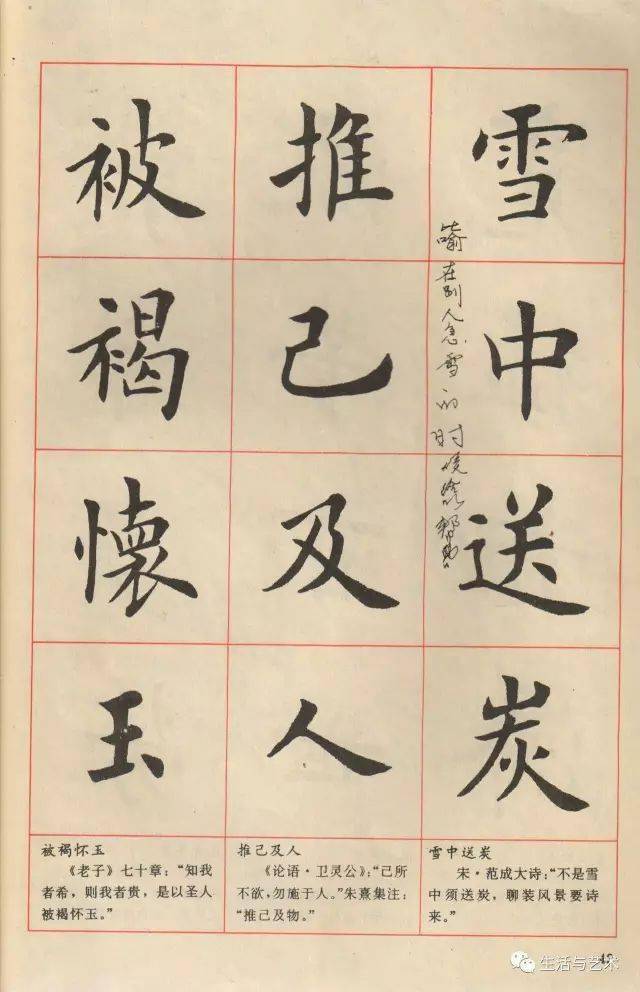 雪中送炭
推己及人
被褐懷玉
喻在别人急需的时候给以帮助
雪中送炭
宋·范成大诗:“不是雪
中须送炭,聊装风景要诗
来。”
推己及人
《论语·卫灵公》:“己所
不欲,勿施于人。”朱熹集注:
“推己及物。”
被褐怀玉
《老子》七十章:“知我
者希,则我者贵,是以圣人
被褐怀玉。”
生活与艺术